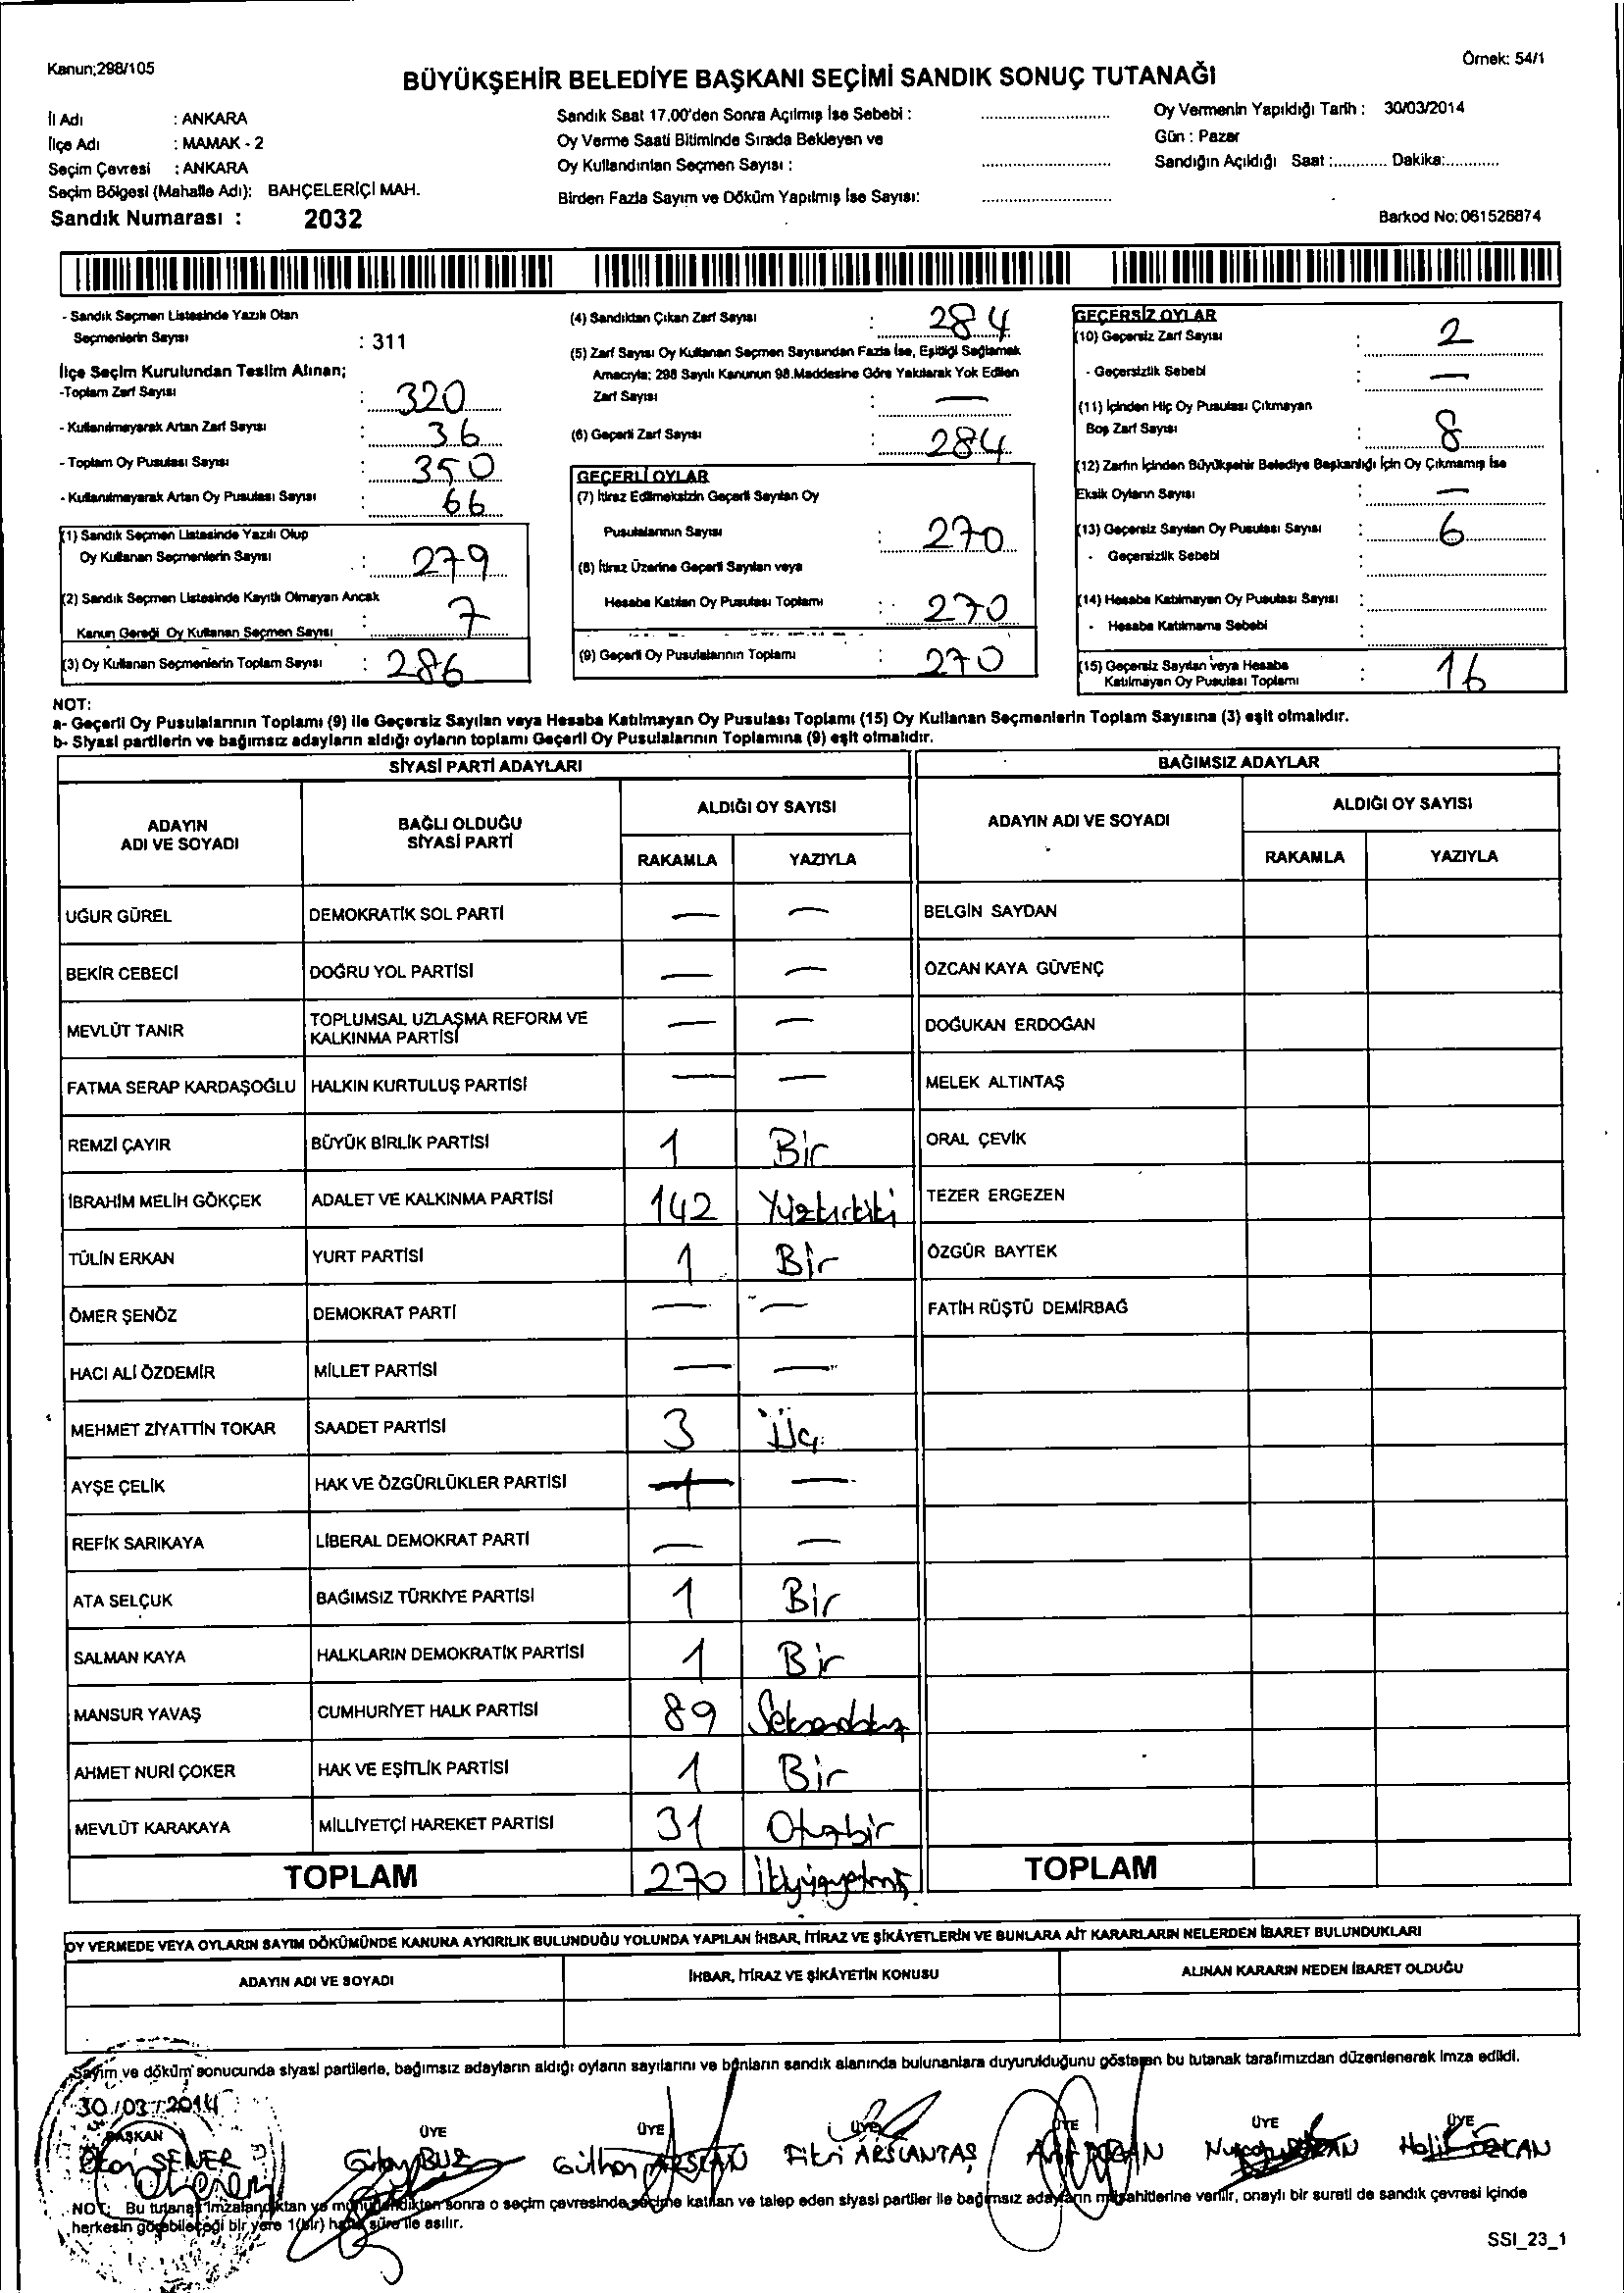 Kanun;298/105
Örnek: 54/1
BÜYÜKŞEHİR BELEDİYE BAŞKANI SEÇİMİ SANDIK SONUÇ TUTANAĞI
İl Adı : ANKARA
İlçe Adı : MAMAK - 2
Seçim Çevresi : ANKARA
Seçim Bölgesi (Mahalle Adı): BAHÇELERİÇİ MAH.
Sandık Numarası : 2032
Sandık Saat 17.00'den Sonra Açılmış İse Sebebi :
Oy Verme Saati Bitiminde Sırada Bekleyen ve
Oy Kullandırılan Seçmen Sayısı :
Birden Fazla Sayım ve Döküm Yapılmış İse Sayısı:
Oy Vermenin Yapıldığı Tarih : 30/03/2014
Gün : Pazar
Sandığın Açıldığı Saat :............ Dakika:............
Barkod No: 061526874
- Sandık Seçmen Listesinde Yazılı Olan
Seçmenlerin Sayısı : 311
İlçe Seçim Kurulundan Teslim Alınan;
-Toplam Zarf Sayısı : 320
- Kullanılmayarak Artan Zarf Sayısı : 36
- Toplam Oy Pusulası Sayısı : 350
- Kullanılmayarak Artan Oy Pusulası Sayısı : 66
(1) Sandık Seçmen Listesinde Yazılı Olup
Oy Kullanan Seçmenlerin Sayısı : 279
(2) Sandık Seçmen Listesinde Kayıtlı Olmayan Ancak
Kanun Gereği Oy Kullanan Seçmen Sayısı : 7
(3) Oy Kullanan Seçmenlerin Toplam Sayısı : 286
(4) Sandıktan Çıkan Zarf Sayısı : 284
(5) Zarf Sayısı Oy Kullanan Seçmen Sayısından Fazla İse, Eşitliği Sağlamak
Amacıyla; 298 Sayılı Kanunun 98.Maddesine Göre Yakılarak Yok Edilen
Zarf Sayısı : —
(6) Geçerli Zarf Sayısı : 284
GEÇERLİ OYLAR
(7) İtiraz Edilmeksizin Geçerli Sayılan Oy
Pusulalarının Sayısı : 270
(8) İtiraz Üzerine Geçerli Sayılan veya
Hesaba Katılan Oy Pusulası Toplamı : 270
(9) Geçerli Oy Pusulalarının Toplamı : 270
GEÇERSİZ OYLAR
(10) Geçersiz Zarf Sayısı : 2
- Geçersizlik Sebebi : —
(11) İçinden Hiç Oy Pusulası Çıkmayan
Boş Zarf Sayısı : 8
(12) Zarfın İçinden Büyükşehir Belediye Başkanlığı İçin Oy Çıkmamış İse
Eksik Oyların Sayısı : —
(13) Geçersiz Sayılan Oy Pusulası Sayısı : 6
- Geçersizlik Sebebi :
(14) Hesaba Katılmayan Oy Pusulası Sayısı :
- Hesaba Katılmama Sebebi :
(15) Geçersiz Sayılan veya Hesaba
Katılmayan Oy Pusulası Toplamı : 16
NOT:
a- Geçerli Oy Pusulalarının Toplamı (9) ile Geçersiz Sayılan veya Hesaba Katılmayan Oy Pusulası Toplamı (15) Oy Kullanan Seçmenlerin Toplam Sayısına (3) eşit olmalıdır.
b- Siyasi partilerin ve bağımsız adayların aldığı oyların toplamı Geçerli Oy Pusulalarının Toplamına (9) eşit olmalıdır.
SİYASİ PARTİ ADAYLARI
BAĞIMSIZ ADAYLAR
ADAYIN ADI VE SOYADI
BAĞLI OLDUĞU SİYASİ PARTİ
ALDIĞI OY SAYISI
RAKAMLA YAZIYLA
ADAYIN ADI VE SOYADI
ALDIĞI OY SAYISI
RAKAMLA YAZIYLA
UĞUR GÜREL DEMOKRATİK SOL PARTİ — — BELGİN SAYDAN
BEKİR CEBECİ DOĞRU YOL PARTİSİ — — ÖZCAN KAYA GÜVENÇ
MEVLÜT TANIR TOPLUMSAL UZLAŞMA REFORM VE KALKINMA PARTİSİ — — DOĞUKAN ERDOĞAN
FATMA SERAP KARDAŞOĞLU HALKIN KURTULUŞ PARTİSİ — — MELEK ALTINTAŞ
REMZİ ÇAYIR BÜYÜK BİRLİK PARTİSİ 1 Bir ORAL ÇEVİK
İBRAHİM MELİH GÖKÇEK ADALET VE KALKINMA PARTİSİ 142 Yüzkırkiki TEZER ERGEZEN
TÜLİN ERKAN YURT PARTİSİ 1 Bir ÖZGÜR BAYTEK
ÖMER ŞENÖZ DEMOKRAT PARTİ — — FATİH RÜŞTÜ DEMİRBAĞ
HACI ALİ ÖZDEMİR MİLLET PARTİSİ — —
MEHMET ZİYATTİN TOKAR SAADET PARTİSİ 3 Üç
AYŞE ÇELİK HAK VE ÖZGÜRLÜKLER PARTİSİ — —
REFİK SARIKAYA LİBERAL DEMOKRAT PARTİ — —
ATA SELÇUK BAĞIMSIZ TÜRKİYE PARTİSİ 1 Bir
SALMAN KAYA HALKLARIN DEMOKRATİK PARTİSİ 1 Bir
MANSUR YAVAŞ CUMHURİYET HALK PARTİSİ 89 Seksendokuz
AHMET NURİ ÇOKER HAK VE EŞİTLİK PARTİSİ 1 Bir
MEVLÜT KARAKAYA MİLLİYETÇİ HAREKET PARTİSİ 31 Otuzbir
TOPLAM 270 İkiyüzyetmiş TOPLAM
OY VERMEDE VEYA OYLARIN SAYIM DÖKÜMÜNDE KANUNA AYKIRILIK BULUNDUĞU YOLUNDA YAPILAN İHBAR, İTİRAZ VE ŞİKÂYETLERİN VE BUNLARA AİT KARARLARIN NELERDEN İBARET BULUNDUKLARI
ADAYIN ADI VE SOYADI İHBAR, İTİRAZ VE ŞİKÂYETİN KONUSU ALINAN KARARIN NEDEN İBARET OLDUĞU
Sayım ve döküm sonucunda siyasi partilerle, bağımsız adayların aldığı oyların sayılarını ve bunların sandık alanında bulunanlara duyurulduğunu gösteren bu tutanak tarafımızdan düzenlenerek imza edildi.
30/03/2014
BAŞKAN ÜYE ÜYE ÜYE ÜYE ÜYE ÜYE
ŞENER Gülhan ARSLAN Fikri ARSLANTAŞ Halil ÖZCAN
NOT: Bu tutanak imzalandıktan ve mühürlendikten sonra o seçim çevresinde seçime katılan ve talep eden siyasi partiler ile bağımsız adayların müşahitlerine verilir, onaylı bir sureti de sandık çevresi içinde
herkesin görebileceği bir yere 1(bir) hafta süre ile asılır.
SSI_23_1